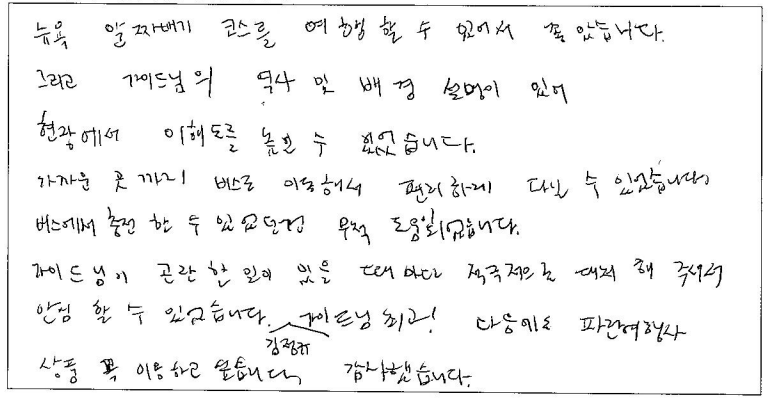 뉴욕 알짜배기 코스를 여행할 수 있어서 좋았습니다.
그리고 가이드님의 역사 및 배경 설명이 있어
현장에서 이해도를 높일 수 있었습니다.
가까운 곳까지 버스로 이동해서 편리하게 다닐 수 있었습니다.
버스에서 충전 할 수 있었던건 무척 도움되었습니다.
가이드님이 곤란한 일이 있을 때마다 적극적으로 대처 해 주셔서
안심 할 수 있었습니다. 가이드님 최고! 다음에도 파란여행사
김정귀
상품 꼭 이용하고 싶습니다. 감사했습니다.